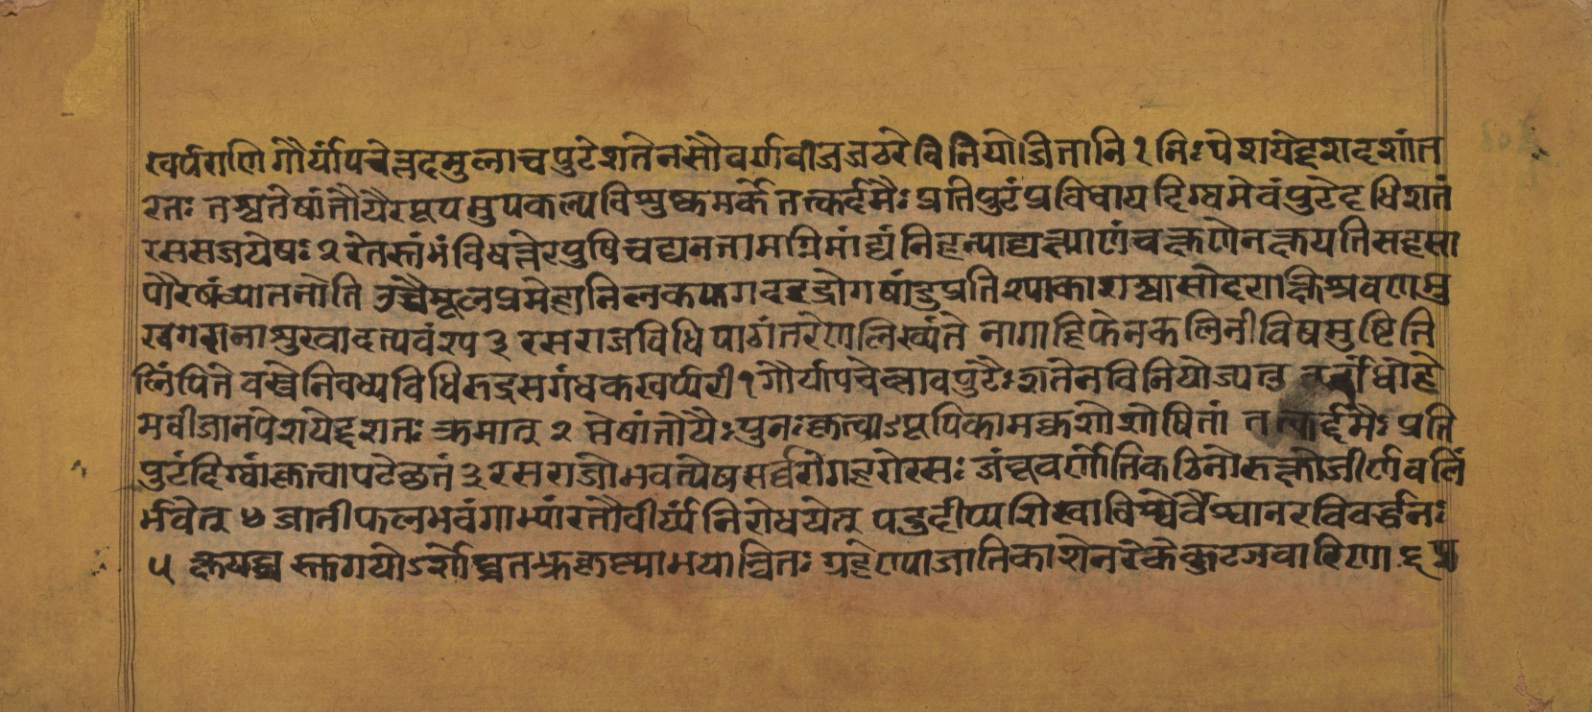 खर्पराणि गौर्यापचेल्लदमुलाच पुटेशतेनसौवर्णवीजजठरे विनियोजितानि १ निःपेशयेद्दशदशांत
रतः तश्चतेषांतौयैरपूपमुपकल्पविशुष्कमर्के तत्कर्दमैः प्रतिपुटं प्रविधाय दिग्धमेवं पुटेदधिशतं
रससजयेषः २ रेतस्तंभंविषल्लेरपुषिचद्यनतामग्निमांद्यं निहत्याद्यक्ष्माणंचक्षणेनक्षयतिसहसा
पौरषंव्यातनोति उच्चैमूलप्रमेहानिलकफगदहृद्रोगषांडुप्रतिश्पाकाशश्वासोदराक्षिश्रवणमु
खगदानाशुखादत्पवंश्प ३ रसराजविधि पाठांतरेणलिर्ख्यते नागाहिफेनकलिनीविषमुष्टिति
लिंपित्ते वस्त्रेनिवध्यविधिरुद्रसगंधकखर्प्परी १ गौर्यापचेल्लावपुटैःशतेनविनियोज्यतु
मवीजानपेशयेद्दशतः क्रमात् २ मेषांतोयैः पुनःकृत्वाऽपूपिकामर्कशोशोषितां तत्कर्द्दमैः प्रति
पुटंदिग्धांकृत्वापटेछतं ३ रसराजोभवत्येषसर्व्वरोगहरोरसः जंबूवर्णोतिकठिनोरुक्षोजीर्णवलिं
र्भवेत् ४ जातीफलभवंगाभ्यांरतौवीर्य्यंनिरोधयेत् पडुदीप्यशिखाविश्वैर्वैश्वानरविवर्द्धनः
५ क्षयघ्न स्तगयोऽर्शोघ्नतक्रकृष्णाभयान्वितः ग्रहेणपाजातिकाशेनरेकेकुटजवारिणा ६